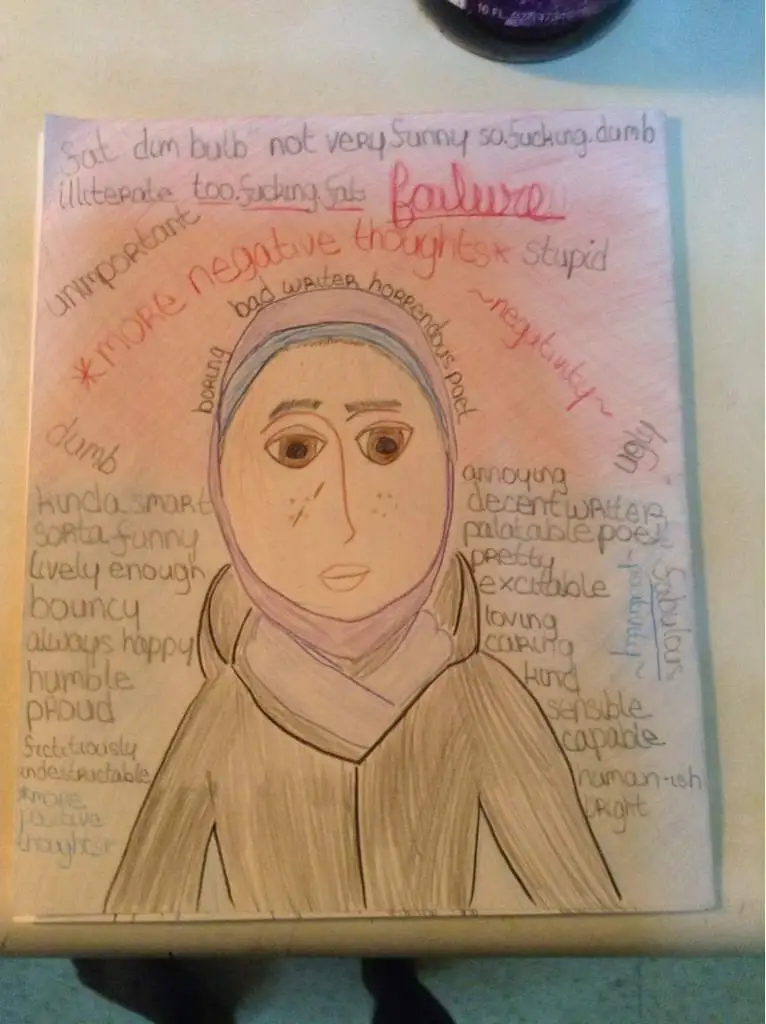 10 FL.
fat "dim bulb" not very funny so.fucking.dumb
illiterate too.fucking.fat failure
unimportant
*more negative thoughts*
stupid
bad writer horrendous poet
~negativity~
boring
dumb
ugly
kinda smart
sorta funny
lively enough
bouncy
always happy
humble
proud
fictitiously
indestructable
*more
positive
thoughts*
annoying
decent writer
palatable poet
pretty
excitable
loving
caring
kind
sensible
capable
human-ish
bright
~positivity~
fabulous